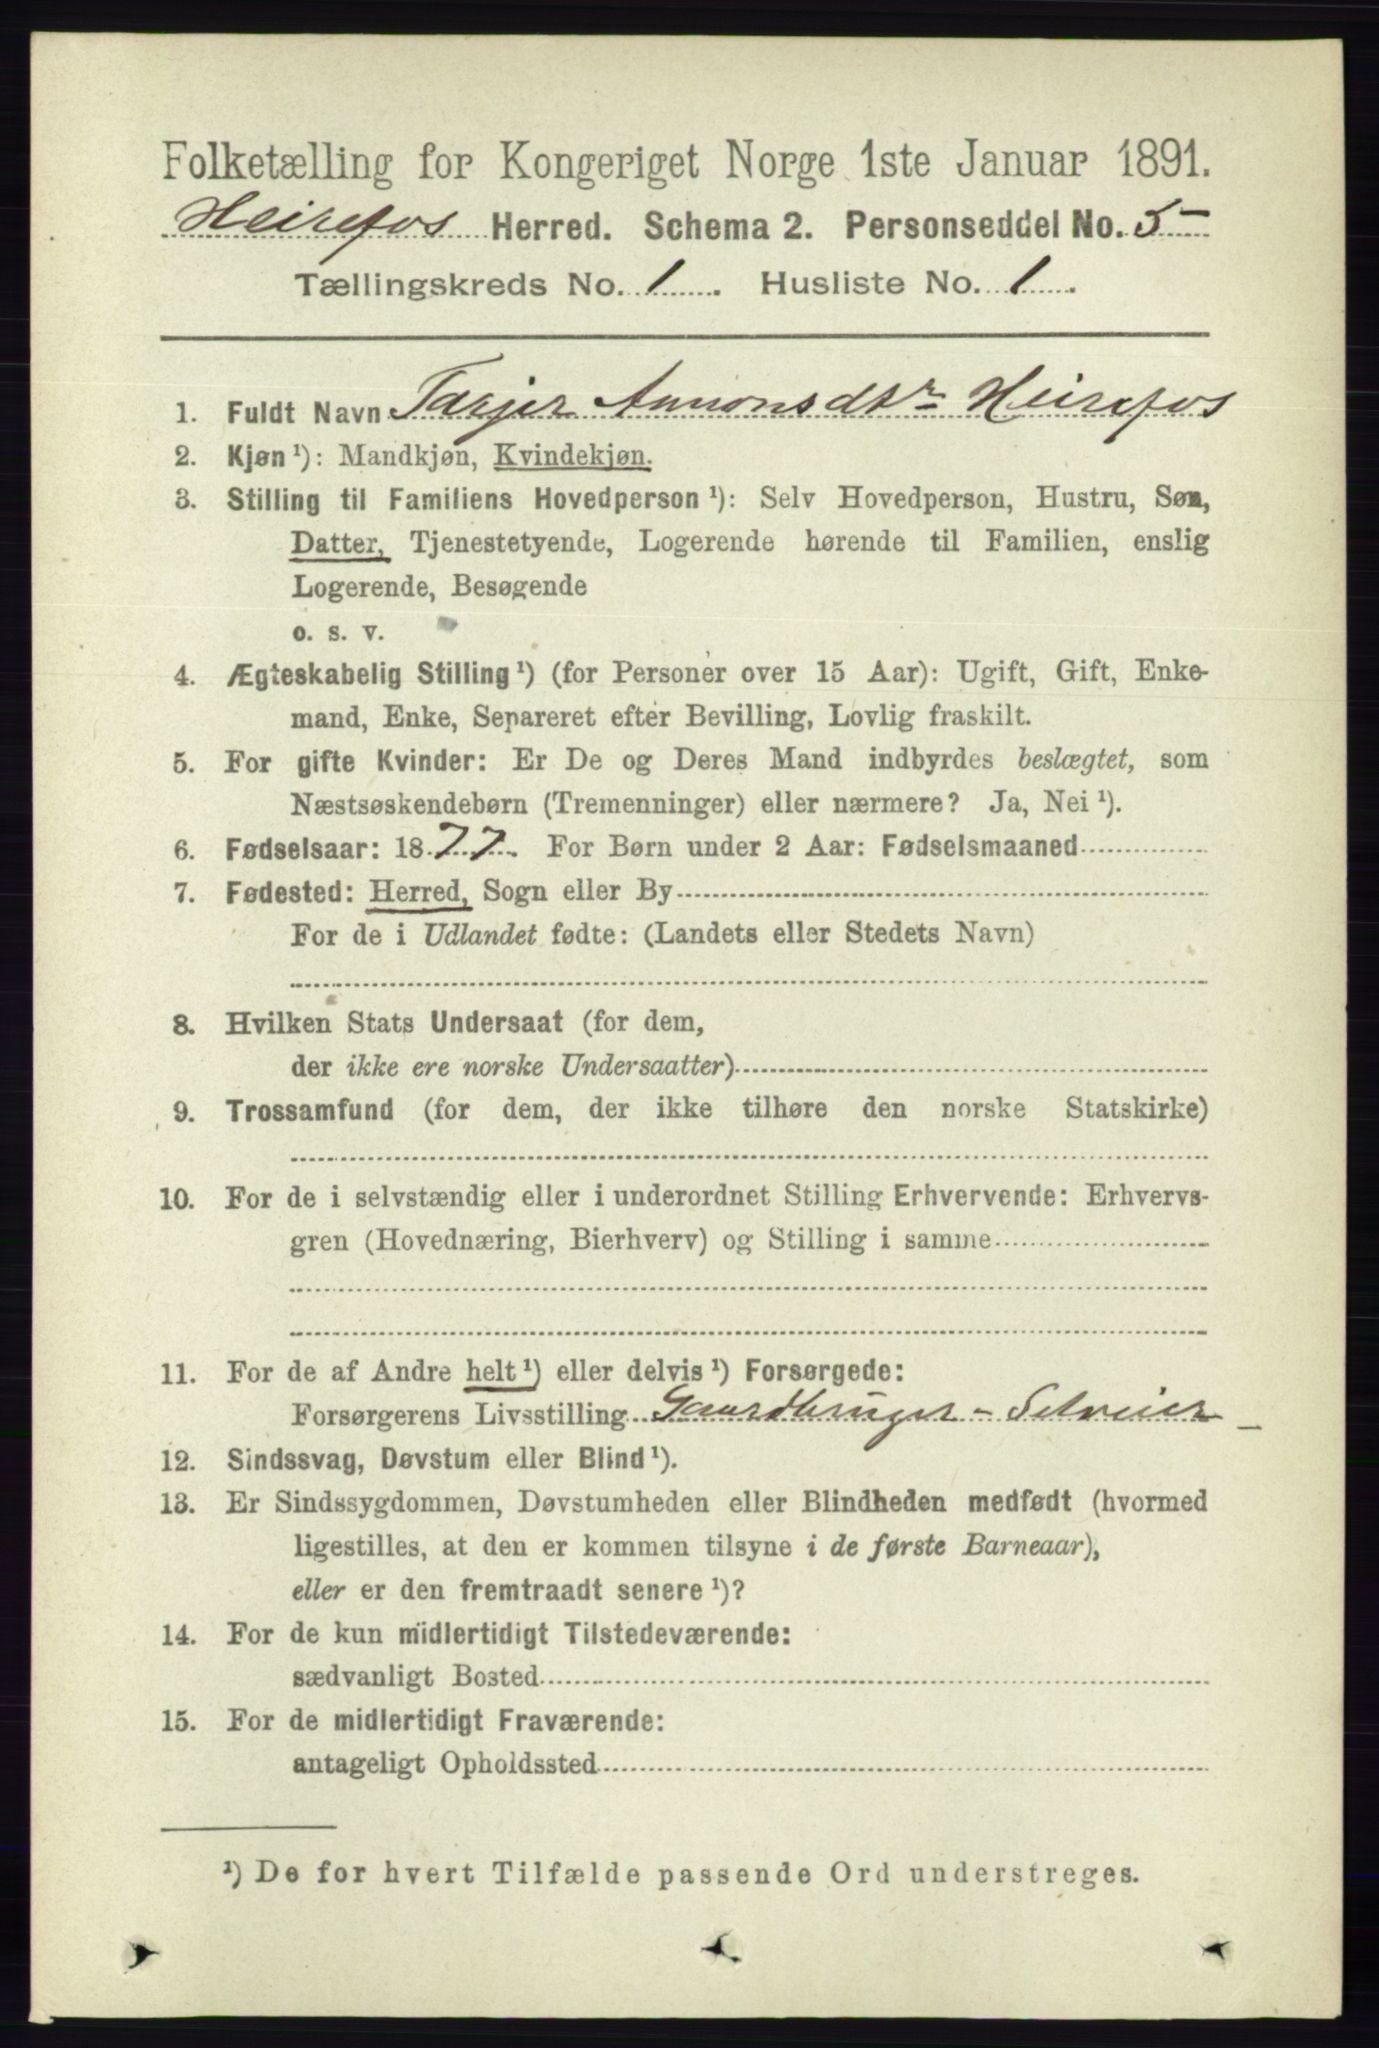 Folketælling for Kongeriget Norge 1ste Januar 1891.
Heirefos Herred. Schema 2. Personseddel No. 5
Tællingskreds No. 1. Husliste No. 1.
1. Fuldt Navn Tarjer Aunonsdtr Heirefos
2. Kjøn ¹): Mandkjøn, Kvindekjøn.
3. Stilling til Familiens Hovedperson ¹): Selv Hovedperson, Hustru, Søn,
Datter, Tjenestetyende, Logerende hørende til Familien, enslig
Logerende, Besøgende
o. s. v.
4. Ægteskabelig Stilling ¹) (for Personer over 15 Aar): Ugift, Gift, Enke-
mand, Enke, Separeret efter Bevilling, Lovlig fraskilt.
5. For gifte Kvinder: Er De og Deres Mand indbyrdes beslægtet, som
Næstsøskendebørn (Tremenninger) eller nærmere? Ja, Nei ¹).
6. Fødselsaar: 1877. For Børn under 2 Aar: Fødselsmaaned
7. Fødested: Herred, Sogn eller By
For de i Udlandet fødte: (Landets eller Stedets Navn)
8. Hvilken Stats Undersaat (for dem,
der ikke ere norske Undersaatter)
9. Trossamfund (for dem, der ikke tilhøre den norske Statskirke)
10. For de i selvstændig eller i underordnet Stilling Erhvervende: Erhvervs-
gren (Hovednæring, Bierhverv) og Stilling i samme
11. For de af Andre helt ¹) eller delvis ¹) Forsørgede:
Forsørgerens Livsstilling Gaardbruger - Selveier
12. Sindssvag, Døvstum eller Blind ¹).
13. Er Sindssygdommen, Døvstumheden eller Blindheden medfødt (hvormed
ligestilles, at den er kommen tilsyne i de første Barneaar),
eller er den fremtraadt senere ¹)?
14. For de kun midlertidigt Tilstedeværende:
sædvanligt Bosted
15. For de midlertidigt Fraværende:
antageligt Opholdssted
¹) De for hvert Tilfælde passende Ord understreges.